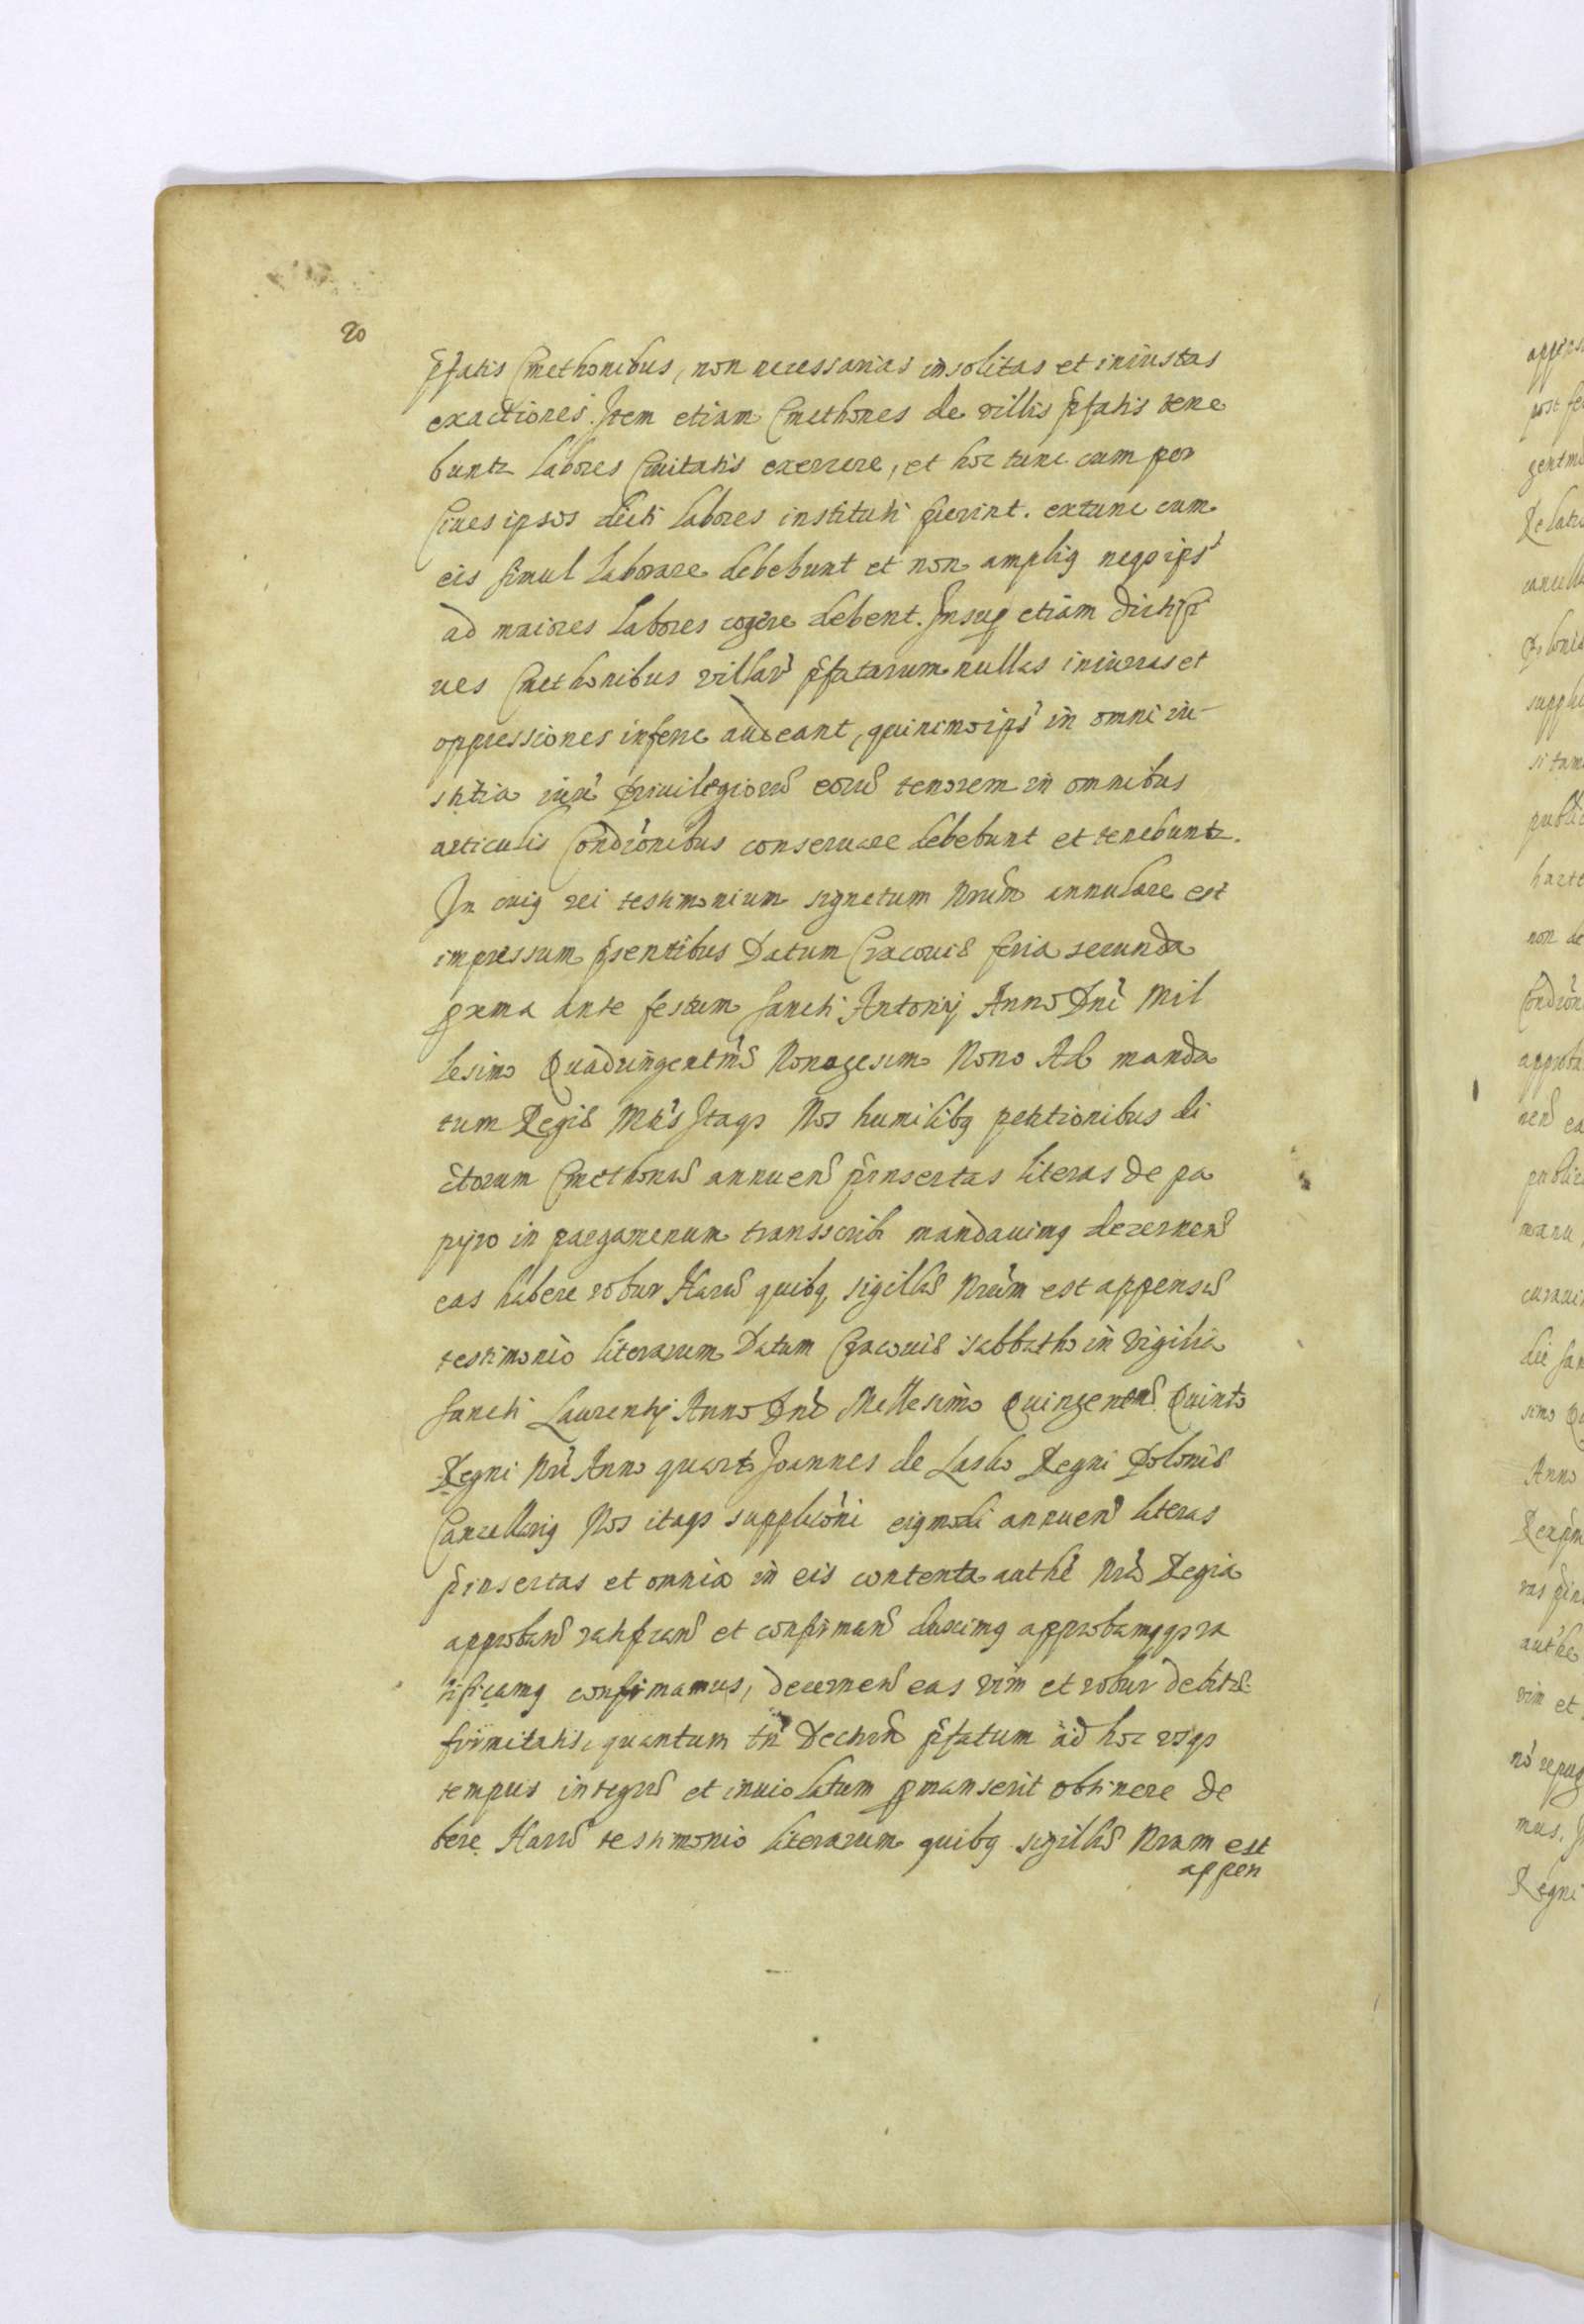 20
pfatis Cmethonibus, non necessarias insolitas et iniustas
exactiones. Item etiam Cmethones de villis pfatis tene
buntr labores Ciuitatis exercere, et hoc tunc cum per
Ciues ipsos dicti labores instituti fuerint. extunc cum
eis simul laborare debebunt et non amplig neqz ips'
ad maiores labores cogere debent. Insup etiam dicti Ci
ues Cmethonibus villar' pfatarum nullas iniurias et
oppressiones inferre audeant, quinimo ips' in omni iu-
stitia iux' Priuilegiorũ eorũ tenorem in omnibus
articulis Condic'onibus conseruare debebunt et tenebuntr.
In cuig rei testimonium signetum nrũm annulare est
impressum psentibus Datum Cracouiæ feria secunda
pxma ante festum Sancti Antonij Anno Dni Mil
lesimo Quadringentmõ Nonagesimo Nono Ad manda
tum Regiæ Mtis Itaqz Nos humilibg petitionibus di
ctorum Cmethonũ annuen̄ pinsertas literas de pa
pyro in pargamenum transscribi mandauimg decernen̄
eas habere robur Harũ quibg sigillũ nrũm est appensũ
testimonio literarum Datum Cracouiæ sabbatho in Vigilia
Sancti Laurentij Anno Dni Millesimo Quingentmõ Quinto
Regni nri Anno quarto Joannes de Lasko Regni Poloniæ
Cancellarig Nos itaqz supplicõni eigmodi annuen̄ literas
pinsertas et omnia in eis contenta authẽ nrã Regia
approban̄ ratifican̄ et confirman̄ duximg approbamgqz ra
tificamg confirmamus, decernen̄ eas vim et robur debitæ
firmitatis, quantum tñ Decretũ pfatum ad hoc vsqz
tempus integrũ et inuiolatum pmanserit obtinere de
bere Harũ testimonio literarum quibg sigillũ nram est
appen